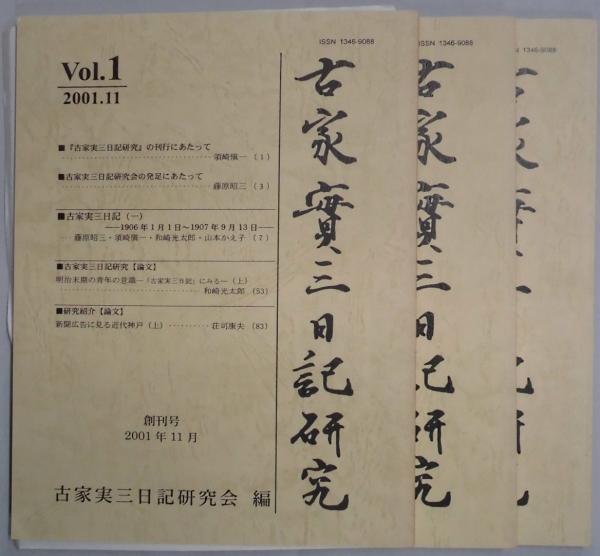 ISSN 1346-9088
Vol.1
2001.11
■『古家実三日記研究』の刊行にあたって
須崎愼一（1）
■古家実三日記研究会の発足にあたって
藤原昭三（3）
■古家実三日記（一）
――1906年1月1日～1907年9月13日――
藤原昭三・須崎愼一・和崎光太郎・山本かえ子（7）
■古家実三日記研究【論文】
明治末期の青年の意識―『古家実三日記』にみる―（上）
和崎光太郎（53）
■研究紹介【論文】
新聞広告に見る近代神戸（上）
荘司康夫（83）
創刊号
2001年11月
古家実三日記研究会 編
古家實三日記研究
ISSN 1346-9088
古家實三日記研究
SN 1346-9088